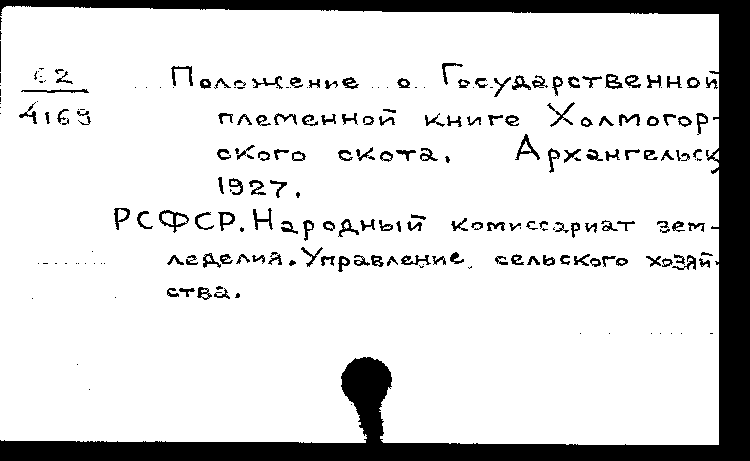 62
4169
Положение о Государственной
племенной книге Холмогор-
ского скота. Архангельск
1927.
РСФСР. Народный комиссариат зем-
леделия. Управление сельского хозяй-
ства.